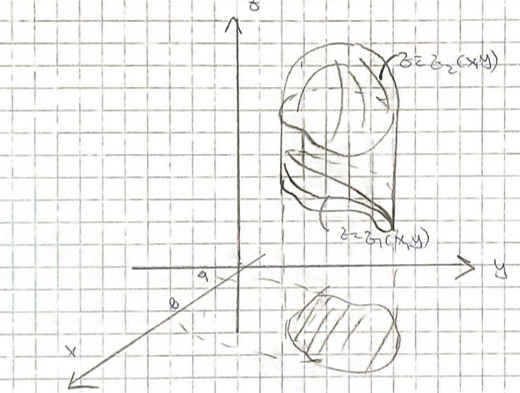 z
z=z₂(x,y)
z=z₁(x,y)
y
a
b
x